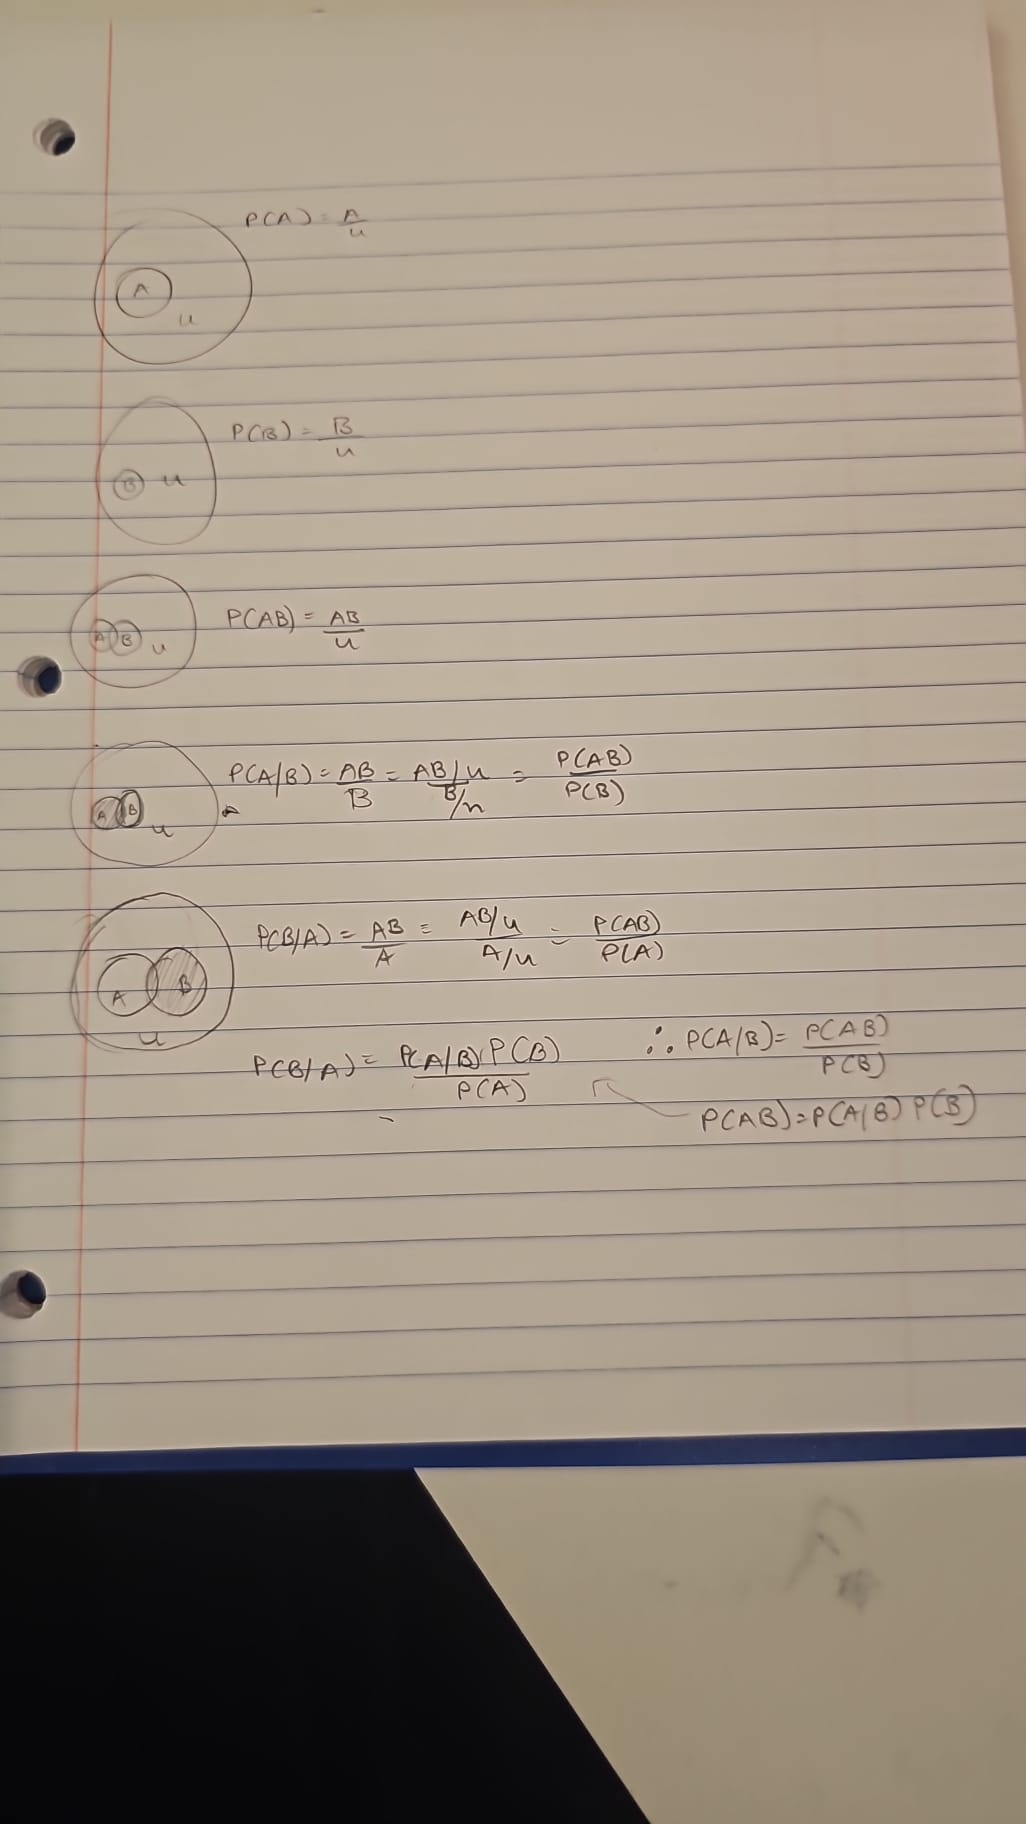 P(A) = A/u
A
u
P(B) = B/u
B u
P(AB) = AB/u
A B u
P(A/B) = AB/B = AB/u / B/n = P(AB)/P(B)
A B u
P(B/A) = AB/A = AB/u / A/u = P(AB)/P(A)
A B
u
P(B/A) = P(A/B) P(B)/P(A) ∴ P(A/B) = P(AB)/P(B)
P(AB) = P(A/B) P(B)